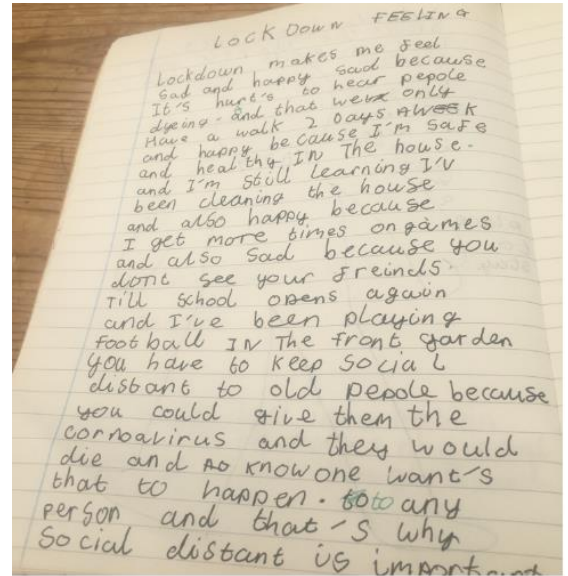 LOCK DOWN FEELING
Lockdown makes me feel
sad and happy sad because
It's hurt's to hear pepole
dyeing. and that we only
Have a walk 2 Days AWEEK
and happy because I'm safe
and healthy IN The house.
and I'm still learning I'v
been cleaning the house
and also happy because
I get more times on games
and also sad because you
dont see your freinds
Till school opens again
and I've been playing
football IN The front garden
you have to keep social
distant to old pepole because
you could give them the
cornoavirus and they would
die and know one want's
that to happen. to any
person and that's why
social distant is important